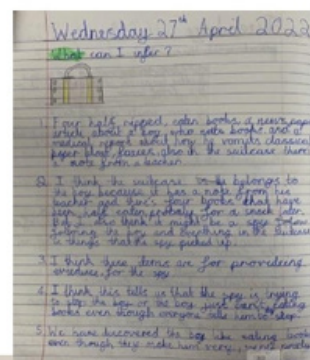 Wednesday 27th April 2022
What can I infer?
1. Four half ripped, eaten books, a news paper
article about a boy who eats books and a
medical report about how he vomits classical
paper also in the suitcase there
a note from a teacher.
2. I think the suitcase belongs to
the boy because it has a note from his
teacher and there's four books that have
been half eaten, for a snack later.
But I also think it might be a spy
following the boy and everything in the suitcase
is things that the spy picked up.
3. I think these items are for providing
evidence for the spy
4. I think this tells us that the spy is trying
to stop the boy or the boy just eating
books even though everyone tells him to stop.
5. We have discovered the boy like eating books
even though they make him very, very